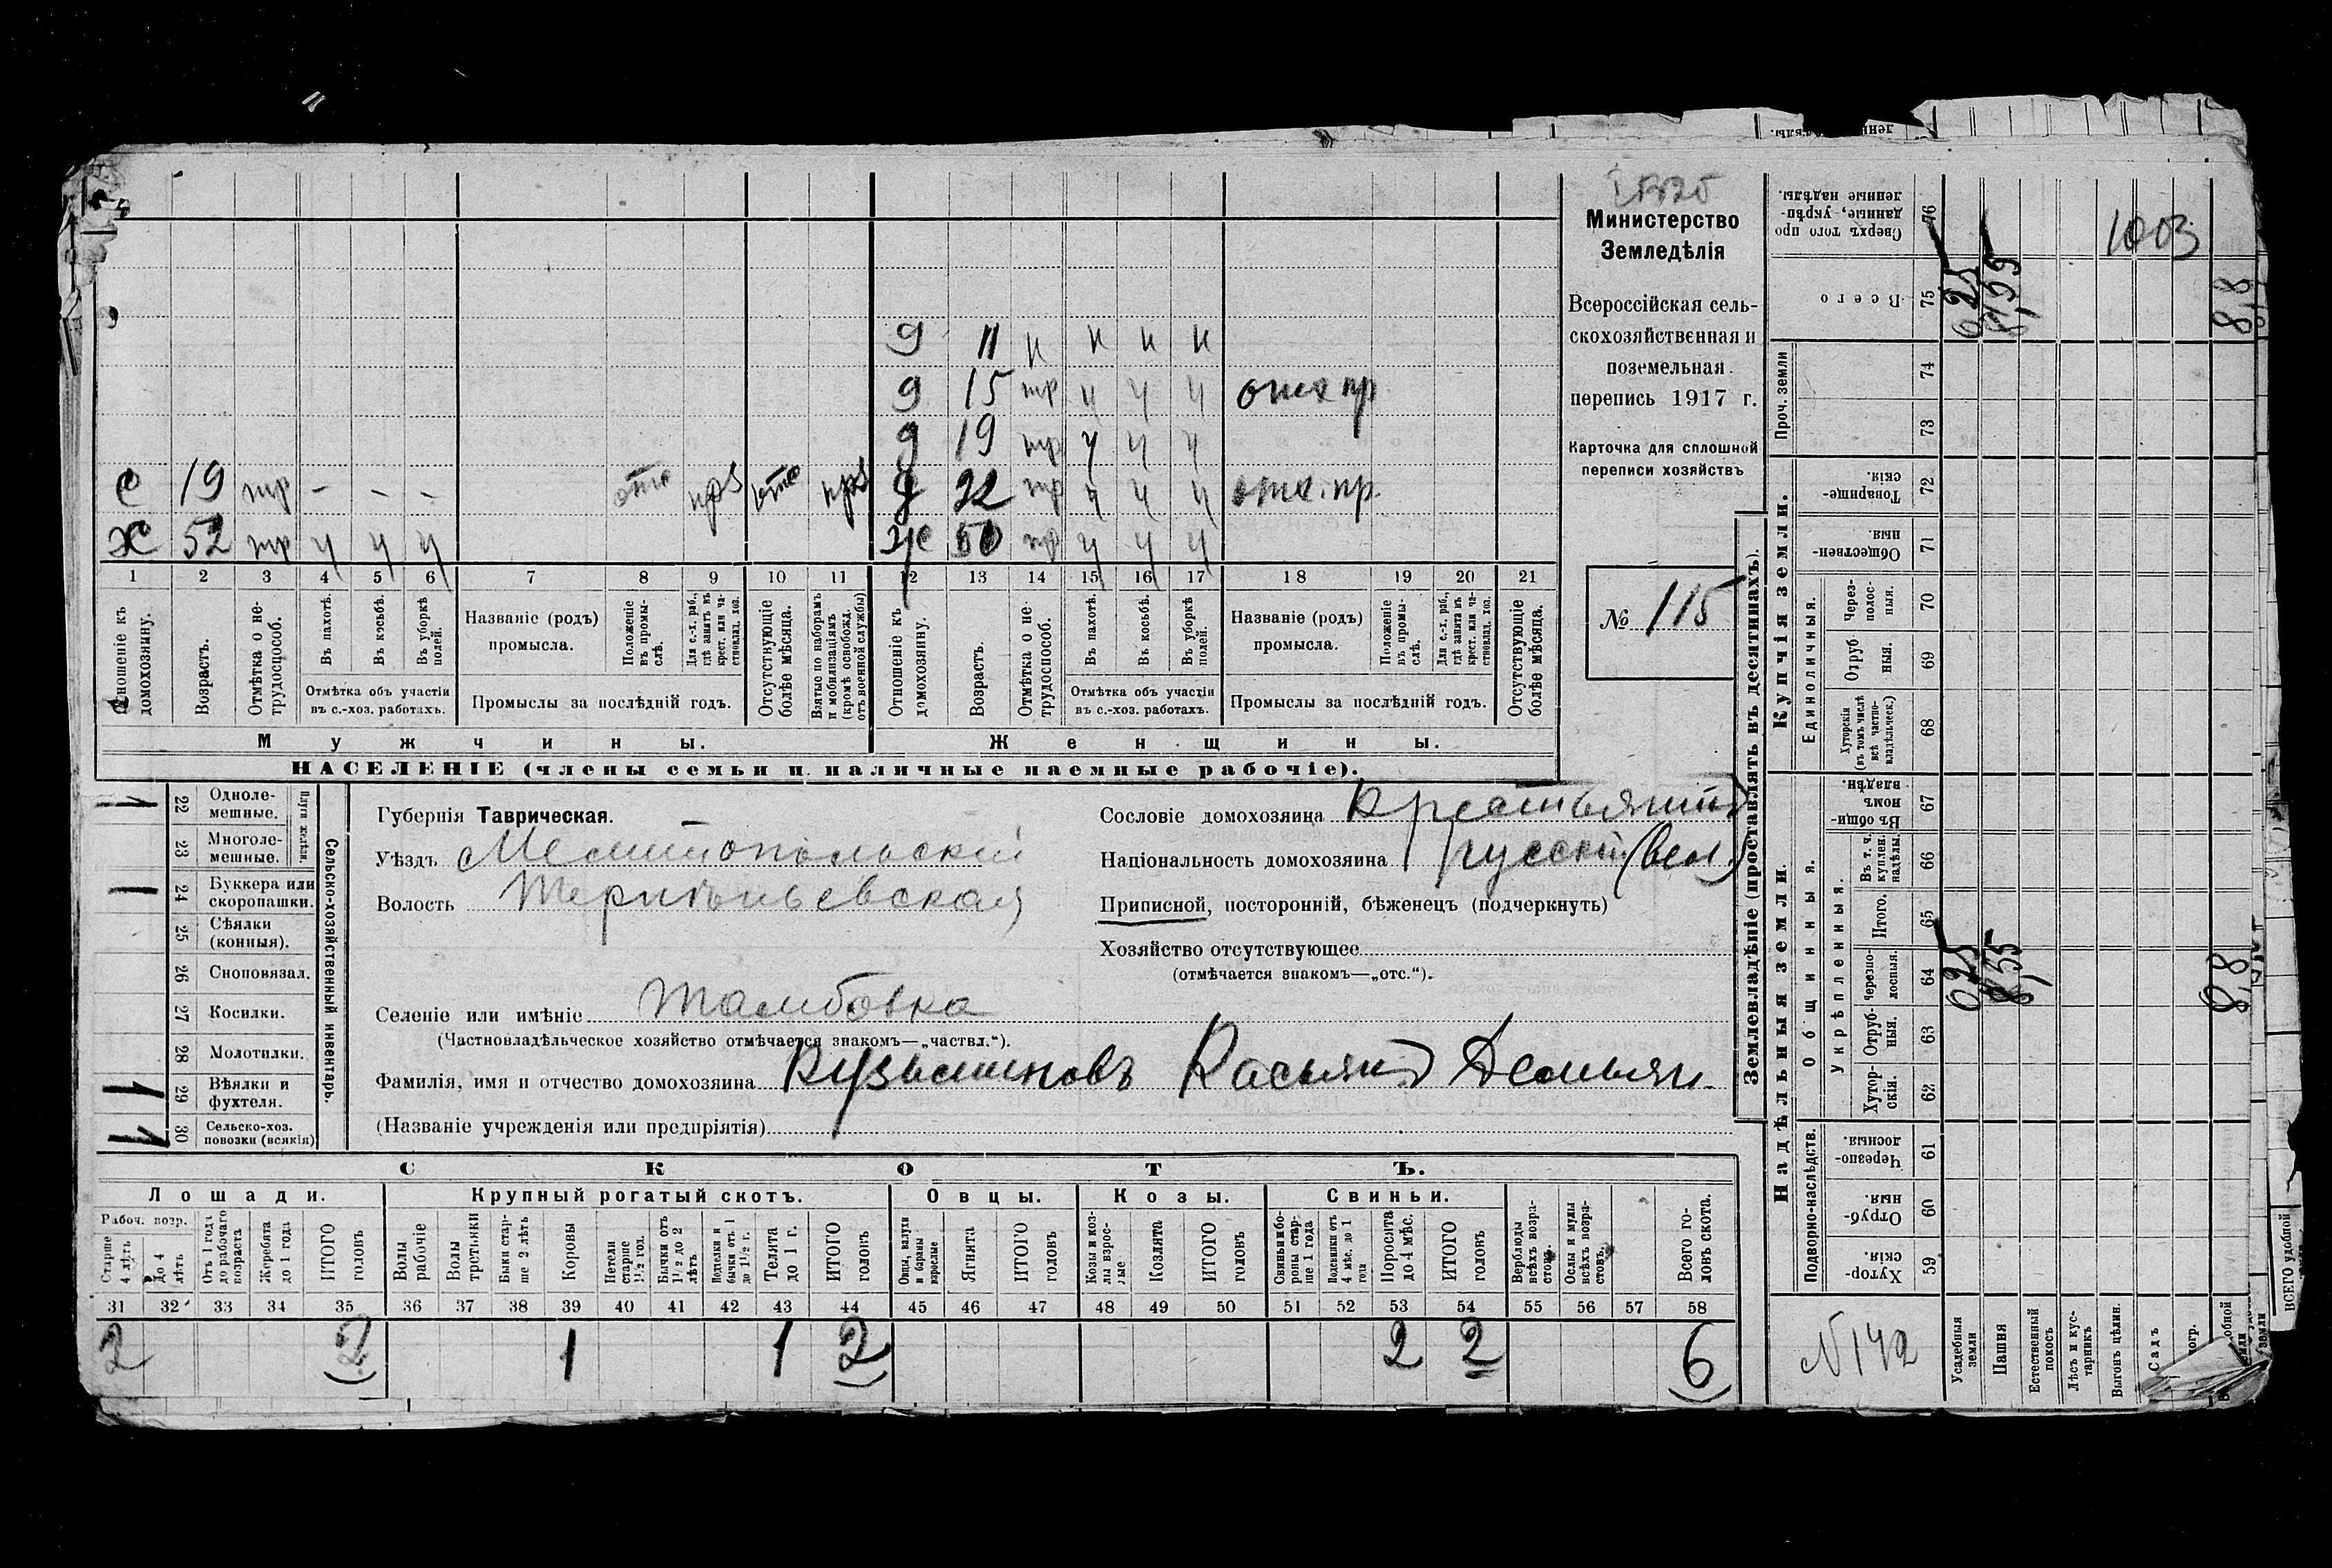 Министерство
Земледѣлія
Всероссійская сель-
скохозяйственная и
поземельная
перепись 1917 г.
Карточка для сплошной
переписи хозяйствъ
№ 115
д 11 н н н н
д 15 тр ч ч ч отх пр
д 19 тр ч ч ч
с 19 тр - - - отс отс д 22 тр ч ч ч отх. пр
х 52 тр ч ч ч ж 50 тр ч ч ч
1 2 3 4 5 6 7 8 9 10 11 12 13 14 15 16 17 18 19 20 21
Отношеніе къ домохозяину.
Возрастъ.
Отмѣтка о не-трудоспособ.
Въ пахотѣ.
Въ косьбѣ.
Въ уборкѣ полей.
Отмѣтка объ участіи
въ с.-хоз. работахъ.
Названіе (родъ)
промысла.
Положеніе въ промы-слѣ.
Для с.-х. раб., гдѣ занятъ въ крест. или ча-стновлад. хоз.
Промыслы за послѣдній годъ.
Отсутствующіе болѣе мѣсяца.
Взятые по наборамъ и мобилизаціямъ (кромѣ освобожд. отъ военной службы)
Отношеніе къ домохозяину.
Возрастъ.
Отмѣтка о не-трудоспособ.
Въ пахотѣ.
Въ косьбѣ.
Въ уборкѣ полей.
Отмѣтка объ участіи
въ с.-хоз. работахъ.
Названіе (родъ)
промысла.
Положеніе въ промы-слѣ.
Для с.-х. раб., гдѣ занята въ крест. или ча-стновлад. хоз.
Промыслы за послѣдній годъ.
Отсутствующіе болѣе мѣсяца.
Мужчины. Женщины.
НАСЕЛЕНІЕ (члены семьи и наличные наемные рабочіе).
Сельско-хозяйственный инвентарь.
Плуги желѣзн.
1 22 Одноле-мешные.
23 Многоле-мешные.
1 24 Буккера или скоропашки.
25 Сѣялки (конныя).
26 Сноповязал.
27 Косилки.
28 Молотилки.
29 Вѣялки и фухтеля.
30 Сельско-хоз. повозки (всякія)
Губернія Таврическая.
Уѣздъ Мелитопольскій
Волость Терпѣньевская
Селеніе или имѣніе Тамбовка
(Частновладѣльческое хозяйство отмѣчается знакомъ—„частвл.“).
Фамилія, имя и отчество домохозяина Кузьминовъ Касьянъ Демьян.
(Названіе учрежденія или предпріятія)
Сословіе домохозяина Крестьянинъ
Національность домохозяина русскій (вел.)
Приписной, посторонній, бѣженецъ (подчеркнуть)
Хозяйство отсутствующее
(отмѣчается знакомъ—„отс.“).
СКОТЪ.
Лошади. Крупный рогатый скотъ. Овцы. Козы. Свиньи.
Рабоч. возр.
Старше 4 лѣтъ
До 4 лѣтъ
Отъ 1 года до рабочаго возраста
Жеребята до 1 года
ИТОГО головъ
Волы рабочіе
Волы третьяки
Быки стар-ше 2 лѣтъ
Коровы
Петели старше 1½ год.
Бычки отъ 1½ до 2 лѣтъ
Подтелки и бычки отъ 1 до 1½ г.
Телята до 1 г.
ИТОГО головъ
Овцы, валухи и бараны взрослые
Ягнята
ИТОГО головъ
Козы и коз-лы взрос-лые
Козлята
ИТОГО головъ
Свиньи и бо-ровы стар-ше 1 года
Подсвинки отъ 4 мѣс. до 1 года
Поросята до 4 мѣс.
ИТОГО головъ
Верблюды всѣхъ возра-стовъ.
Ослы и мулы всѣхъ возра-стовъ.
Всего го-ловъ скота.
31 32 33 34 35 36 37 38 39 40 41 42 43 44 45 46 47 48 49 50 51 52 53 54 55 56 57 58
2 2 1 1 2 2 2 6
Землевладѣніе (проставлять въ десятинахъ).
Надѣльныя земли. Купчія земли.
Подворно-наслѣдств.
Общинныя.
Укрѣпленныя.
Единоличныя.
Проч. земли
59 Хутор-скія.
60 Отруб-ныя.
61 Черезпо-лосныя.
62 Хутор-скія.
63 Отруб-ныя.
64 Черезпо-лосныя.
65 Итого.
66 Въ т. ч. куплен. надѣлы.
67 Въ общин-номъ владѣн.
68 Хуторскія (въ томъ числѣ всѣ частно-владѣльческ.)
69 Отруб-ныя.
70 Через-полос-ныя.
71 Обществен-ныя.
72 Товарище-скія.
73
74
75 Всего
76 Сверхъ того про-данные, укрѣп-ленные надѣлы.
N 142
Усадебныя земли 0,25 0,25
Пашня 8,55
Естественный покосъ
Лѣсъ и кус-тарникъ
Выгонъ цѣлин.
Садъ
8,8 8,8
1003
ВСЕГО удобной